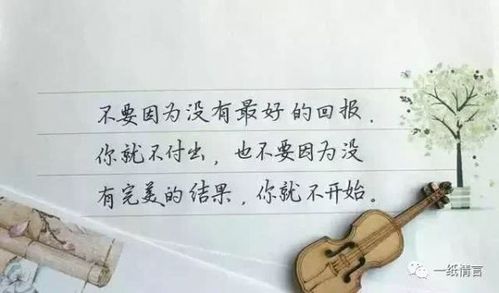 不要因为没有最好的回报，
你就不付出，也不要因为没
有完美的结果，你就不开始。
一纸情言